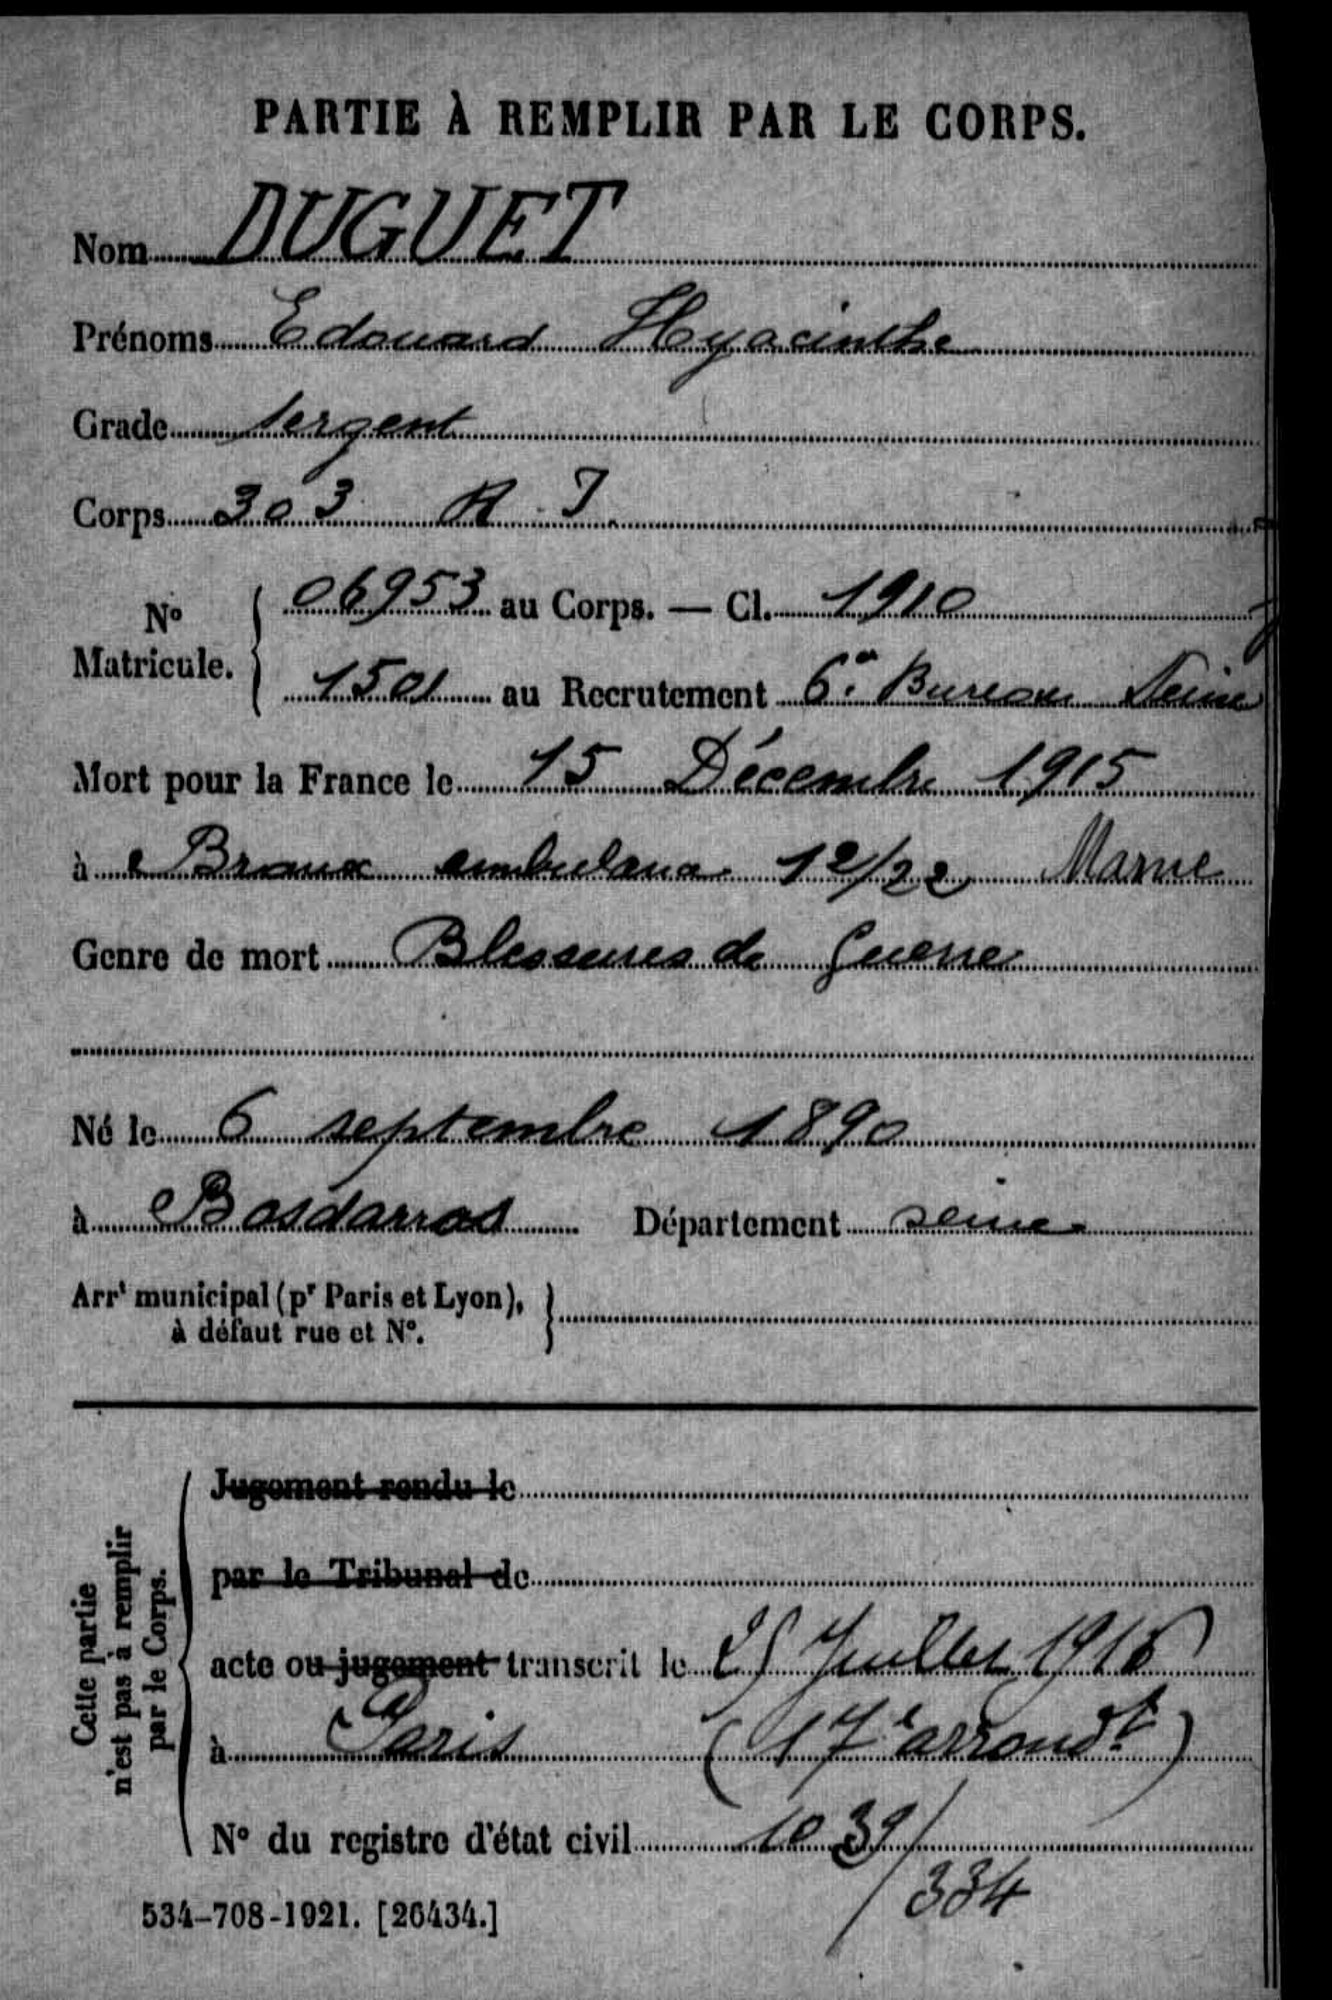 PARTIE À REMPLIR PAR LE CORPS.
Nom DUGUET
Prénoms Edouard Hyacinthe
Grade Sergent
Corps 303 R. I.
No Matricule. 06953 au Corps. — Cl. 1910
1501 au Recrutement 6e Bureau Seine
Mort pour la France le 15 Décembre 1915
à Braux ambulance 12/22 Marne
Genre de mort Blessures de Guerre
Né le 6 septembre 1890
à Bosdarros Département Seine
Arrt municipal (pr Paris et Lyon),
à défaut rue et No.
Cette partie
n'est pas à remplir
par le Corps.
Jugement rendu le
par le Tribunal de
acte ou jugement transcrit le Juillet 1916
à Paris (17e arrondt)
No du registre d'état civil 1039/
/334
534-708-1921. [26434.]